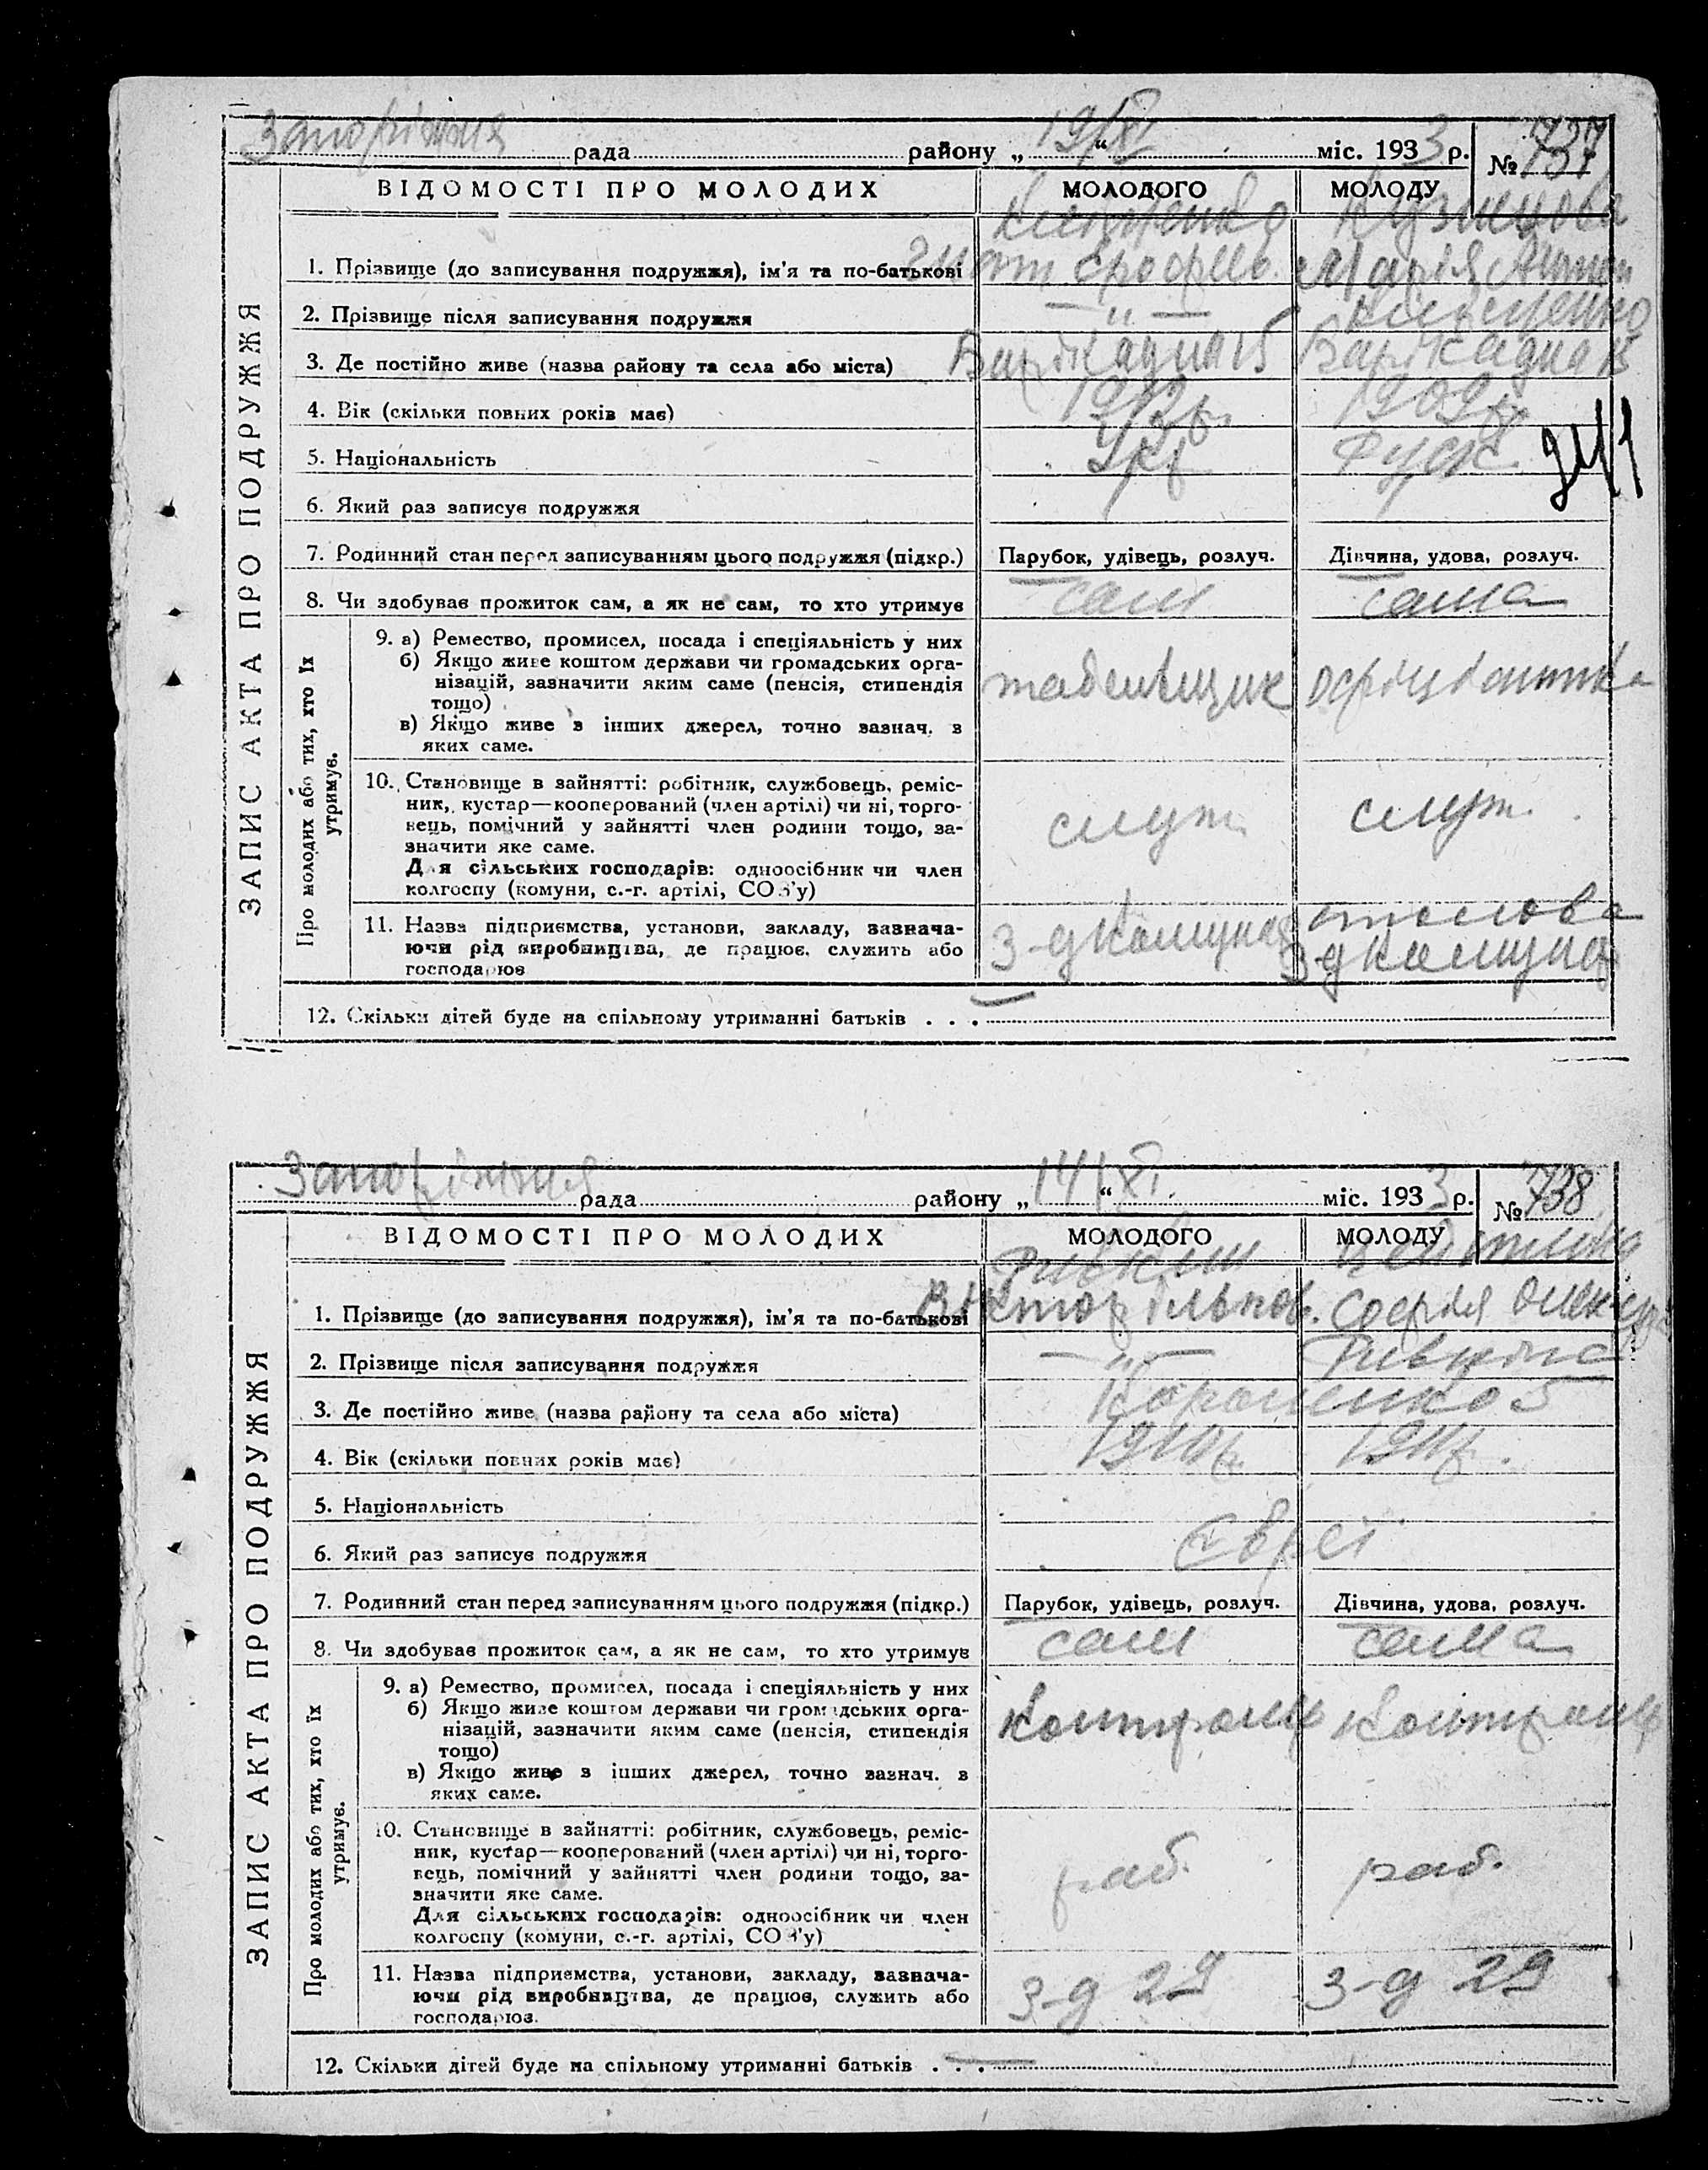 Запоріжжя рада району „ 19/XI “ міс. 1933 р. № 737
ВІДОМОСТІ ПРО МОЛОДИХ МОЛОДОГО МОЛОДУ
ЗАПИС АКТА ПРО ПОДРУЖЖЯ
Кузнецова
1. Прізвище (до записування подружжя), ім'я та по-батькові Марія Антон
2. Прізвище після записування подружжя — „ —
3. Де постійно живе (назва району та села або міста) Барікадна 15 Барікадна 15
4. Вік (скільки повних років має) 1909 р.
5. Національність Укр Руск
6. Який раз записує подружжя
7. Родинний стан перед записуванням цього подружжя (підкр.) Парубок, удівець, розлуч. Дівчина, удова, розлуч.
8. Чи здобуває прожиток сам, а як не сам, то хто утримує сам сама
Про молодих або тих, хто їх утримує.
9. а) Ремество, промисел, посада і спеціяльність у них
б) Якщо живе коштом держави чи громадських орга-
нізацій, зазначити яким саме (пенсія, стипендія табельщик офіціантка
тощо)
в) Якщо живе з інших джерел, точно зазнач. з
яких саме.
10. Становище в зайнятті: робітник, службовець, реміс-
ник, кустар—кооперований (член артілі) чи ні, торго-
вець, помічний у зайнятті член родини тощо, за- служ. служ.
значити яке саме.
Для сільських господарів: одноосібник чи член
колгоспу (комуни, с.-г. артілі, СОЗ'у)
столова
11. Назва підприємства, установи, закладу, зазнача-
ючи рід виробництва, де працює, служить або з-д Комунар з-д Комунар
господарює
12. Скільки дітей буде на спільному утриманні батьків . . . —
Запоріжжя рада району „ 14/XI “ міс. 1933 р. № 738
ВІДОМОСТІ ПРО МОЛОДИХ МОЛОДОГО МОЛОДУ
ЗАПИС АКТА ПРО ПОДРУЖЖЯ
Ривкин
1. Прізвище (до записування подружжя), ім'я та по-батькові Віктор Ільков. Софія Олександ
2. Прізвище після записування подружжя — „ — Ривкіна
3. Де постійно живе (назва району та села або міста)
4. Вік (скільки повних років має) 1910 р. 1911 р.
5. Національність
Євреї
6. Який раз записує подружжя
7. Родинний стан перед записуванням цього подружжя (підкр.) Парубок, удівець, розлуч. Дівчина, удова, розлуч.
8. Чи здобуває прожиток сам, а як не сам, то хто утримує сам сама
Про молодих або тих, хто їх утримує.
9. а) Ремество, промисел, посада і спеціяльність у них
б) Якщо живе коштом держави чи громадських орга- контролер контролер
нізацій, зазначити яким саме (пенсія, стипендія
тощо)
в) Якщо живе з інших джерел, точно зазнач. з
яких саме.
10. Становище в зайнятті: робітник, службовець, реміс-
ник, кустар—кооперований (член артілі) чи ні, торго-
вець, помічний у зайнятті член родини тощо, за- раб. раб.
значити яке саме.
Для сільських господарів: одноосібник чи член
колгоспу (комуни, с.-г. артілі, СОЗ'у)
11. Назва підприємства, установи, закладу, зазнача-
ючи рід виробництва, де працює, служить або з-д 29 з-д 29
господарює.
12. Скільки дітей буде на спільному утриманні батьків . . . —